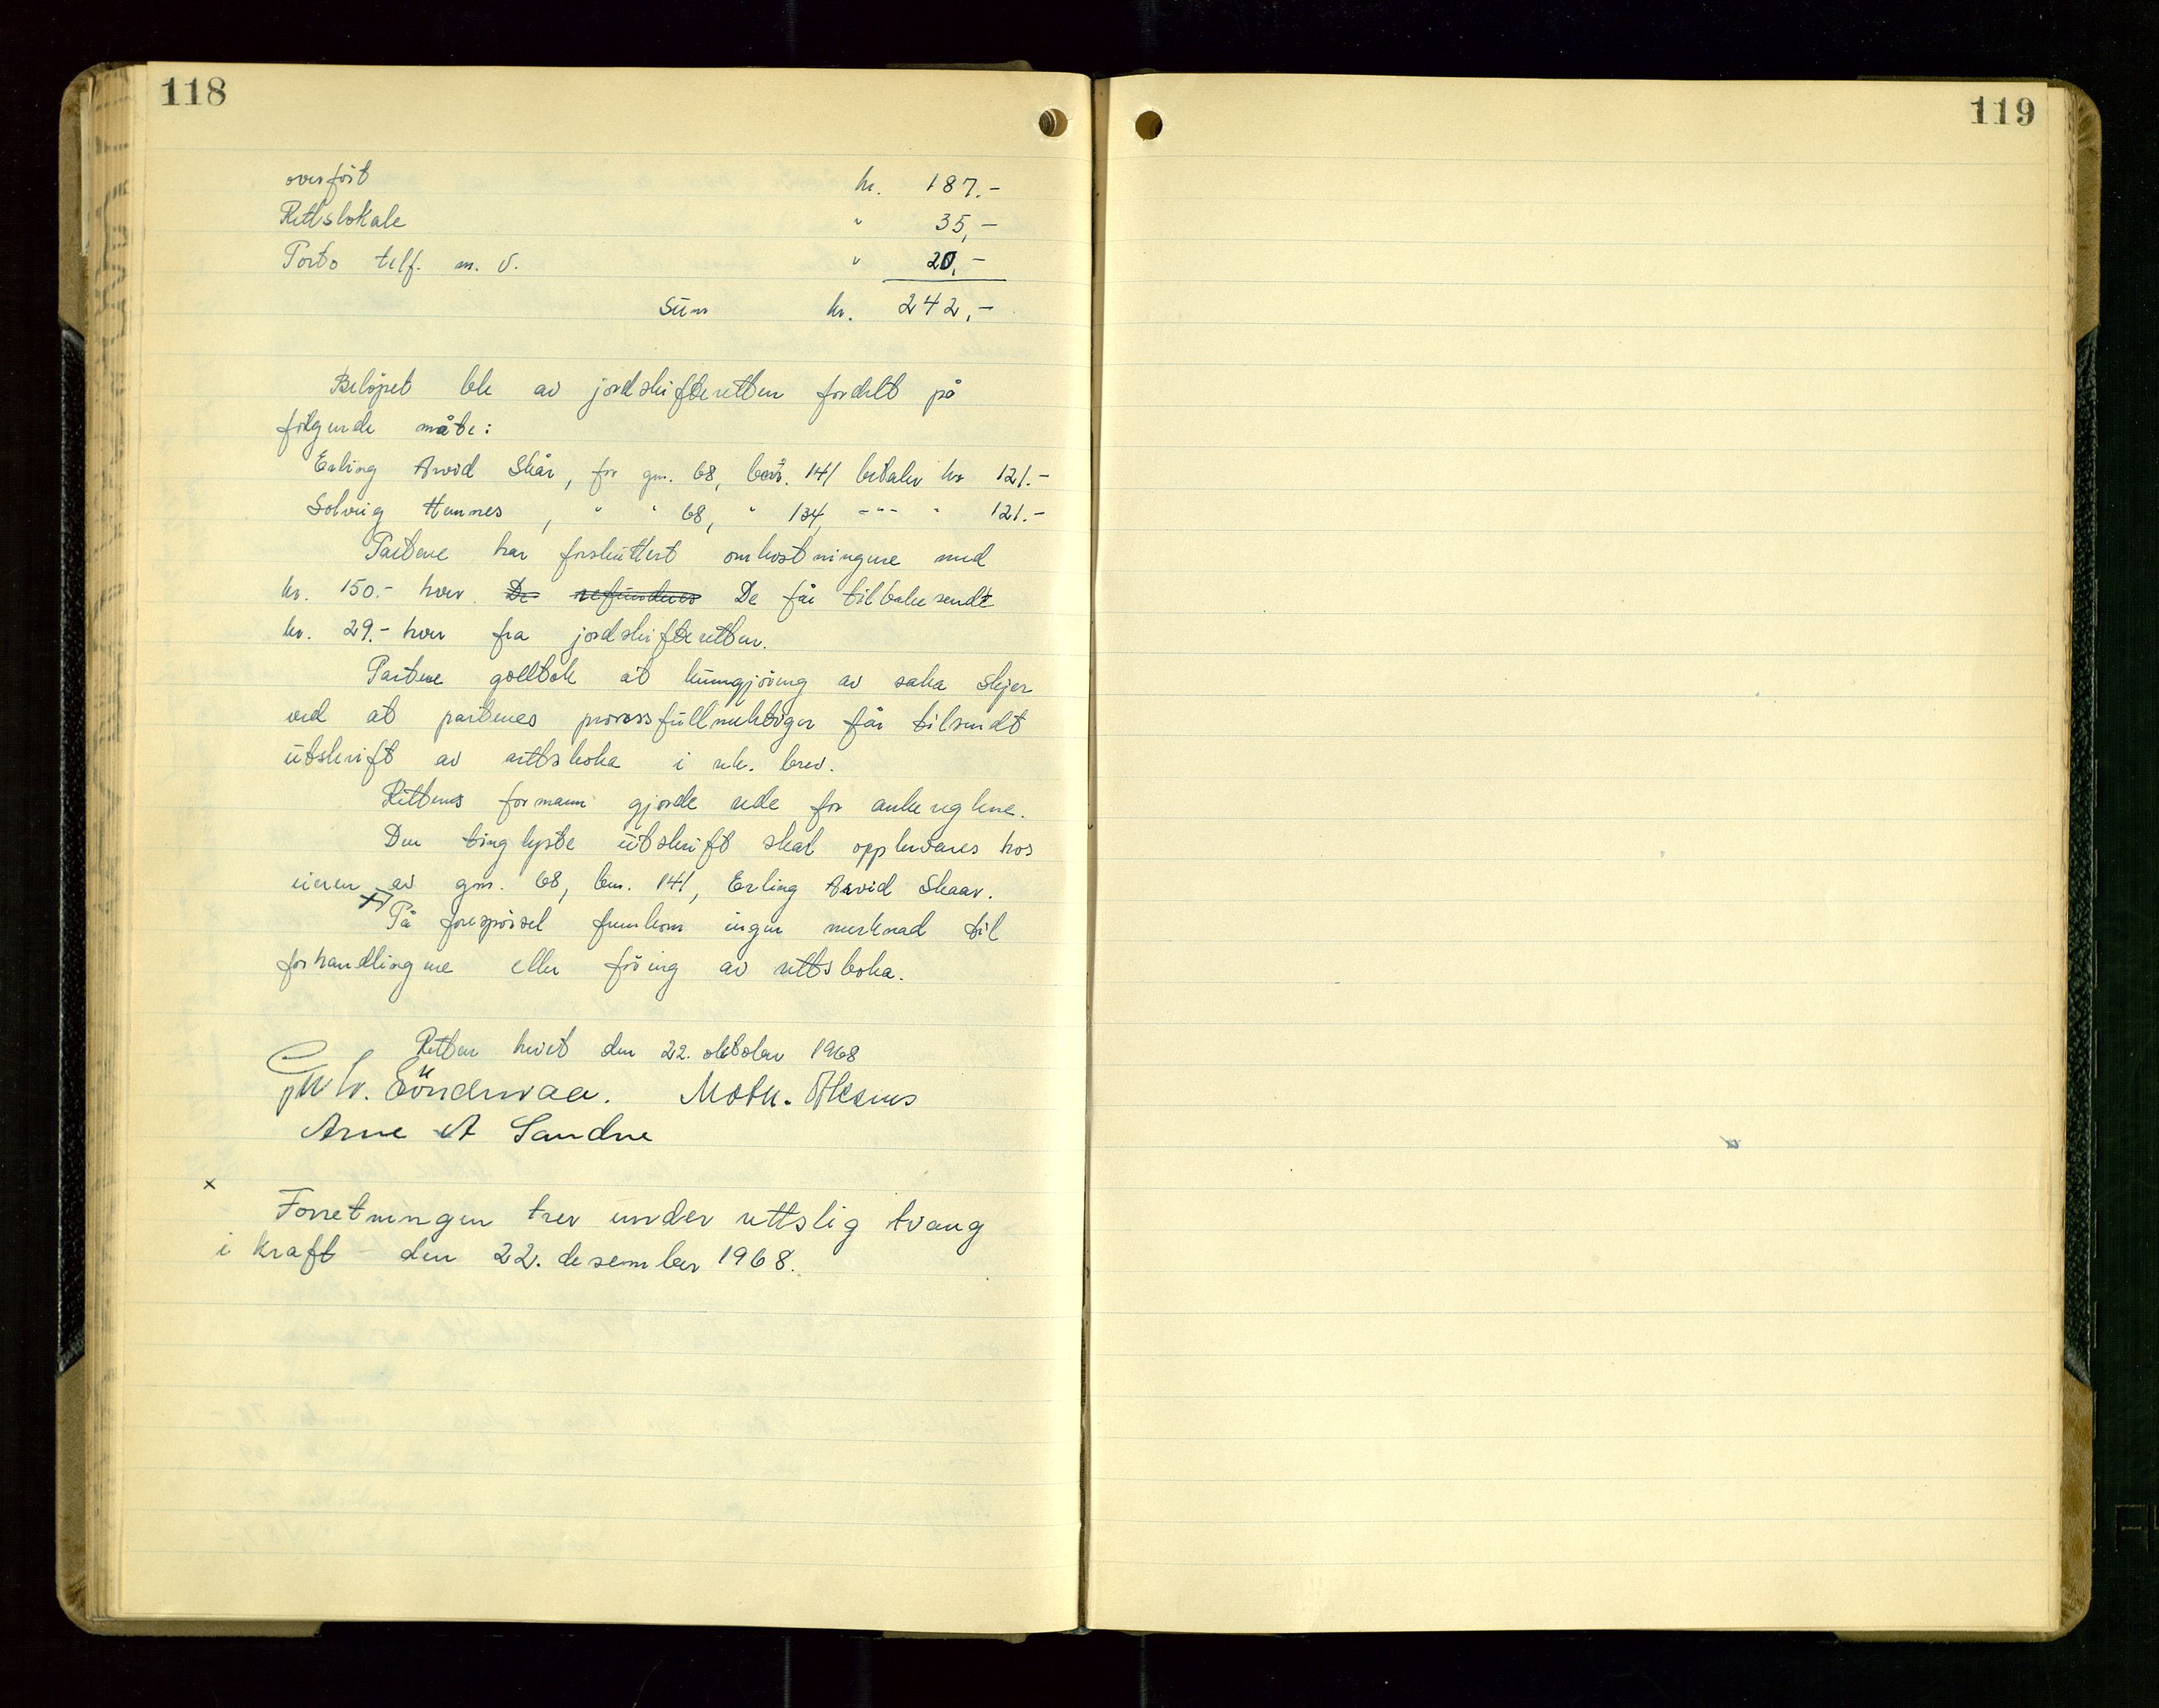 118
119
overført kr. 187.-
Rettslokale " 35,-
Porto telf. m. v. " 20,-
Sum kr. 242,-
Beløpet ble av jordskifteretten fordelt på
følgende måte:
Erling Arvid Skår, for gnr. 68, bnr. 141 betaler kr 121.-
Solveig Hennes, " " 68, " 134, -"- " 121.-
Partene har forskuttert omkostningene med
kr. 150.- hver. De refunderes De får tilbakesendt
kr. 29.- hver fra jordskifteretten.
Partene godtok at kunngjøring av saka skjer
ved at partenes prosessfullmektiger får tilsendt
utskrift av rettsboka i rek. brev.
Rettens formann gjorde rede for ankereglene.
Den tinglyste utskrift skal oppbevares hos
eieren av gnr. 68, bnr. 141, Erling Arvid Skaar.
x) På forespørsel fremkom ingen merknad til
forhandlingene eller føring av rettsboka.
Retten hevet den 22. oktober 1968
Arne A Sandne
x
Forretningen trer under rettslig tvang
i kraft - den 22. desember 1968.